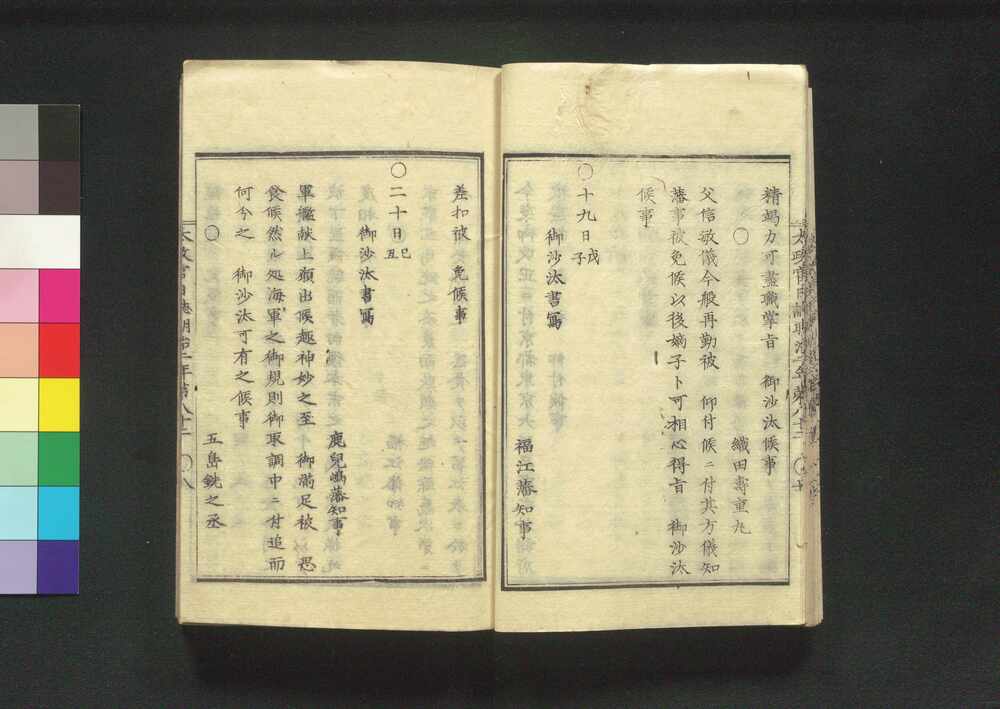 精竭力可盡職掌旨　御沙汰候事
〇　織田壽重丸
父信敏儀今般再勤被　仰付候ニ付其方儀知
藩事被免候以後嫡子ト可相心得旨　御沙汰
候事
〇十九日戊子
御沙汰書寫
福江藩知事
差扣被　免候事
〇二十日己丑
御沙汰書寫
鹿兒嶋藩知事
軍艦献上願出候趣神妙之至　御滿足被　思
食候然ル処海軍之御規則御取調中ニ付追而
何分之　御沙汰可有之候事
〇　五島銑之丞
太政官日誌明治二年第八十二　〇八